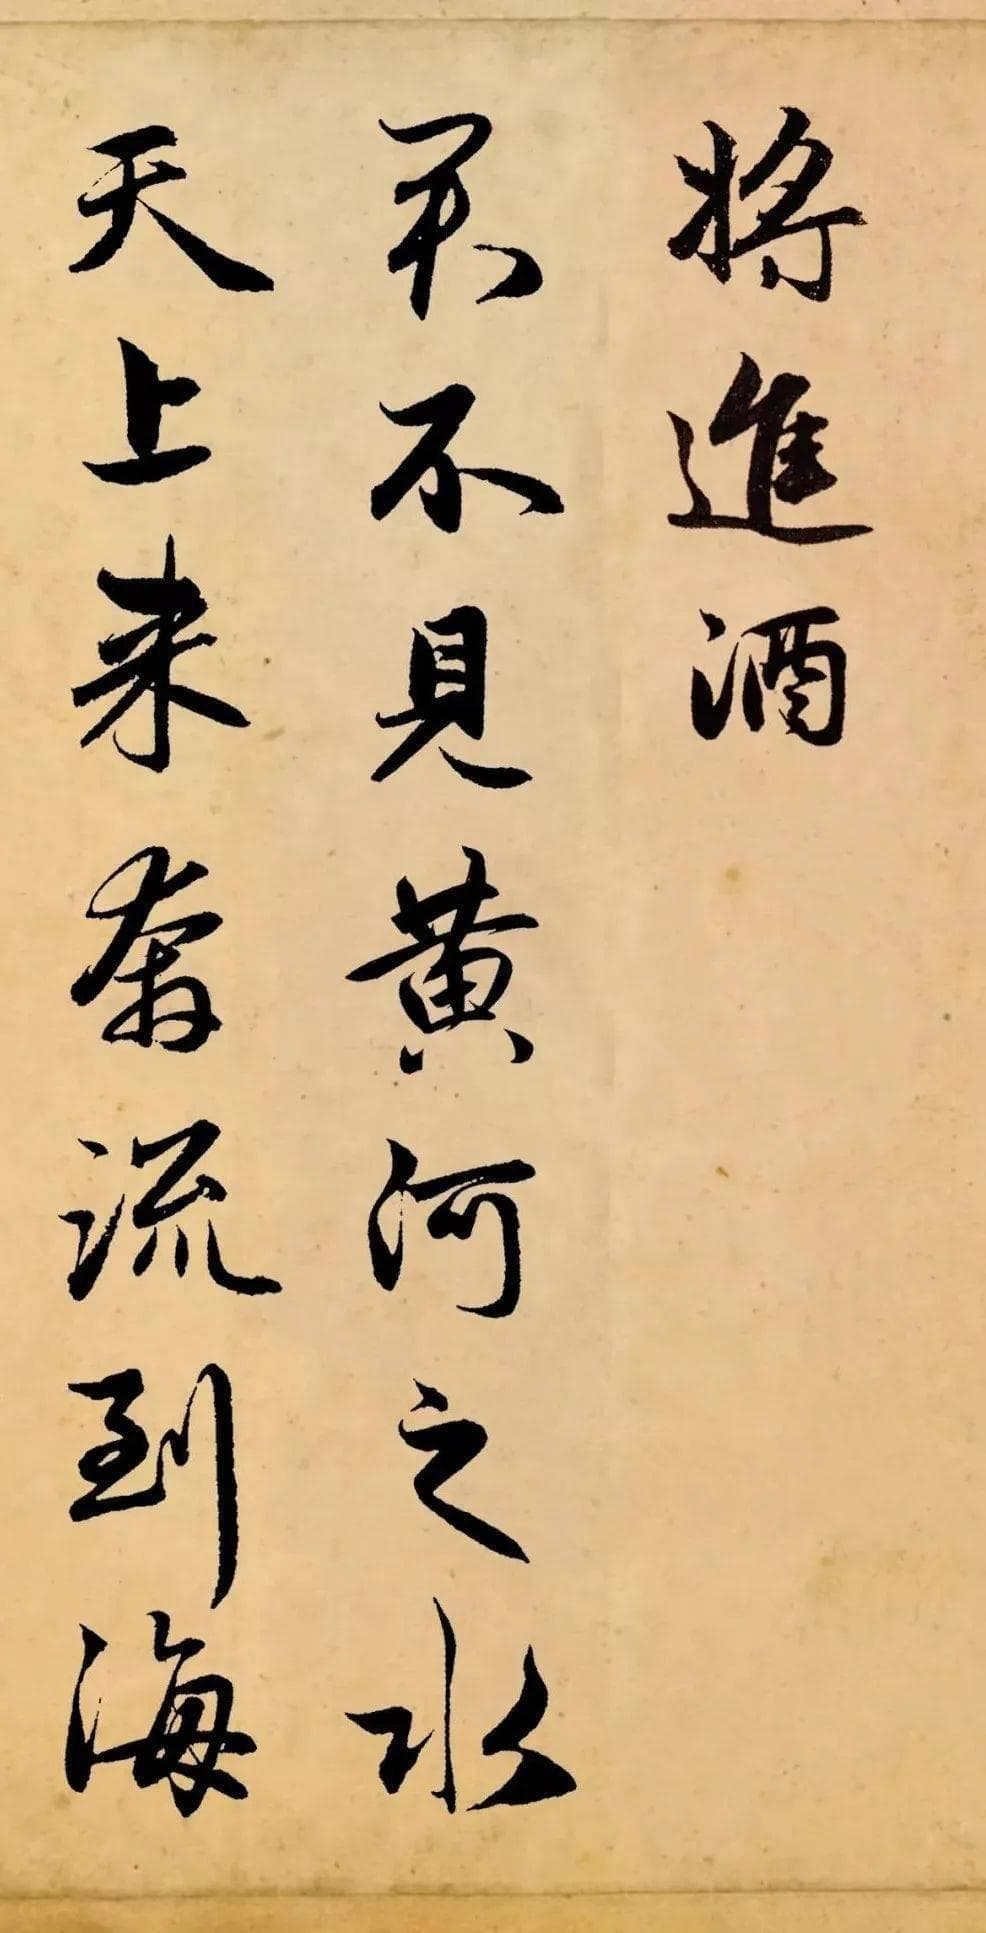 將進酒
君不見黄河之水
天上来奔流到海